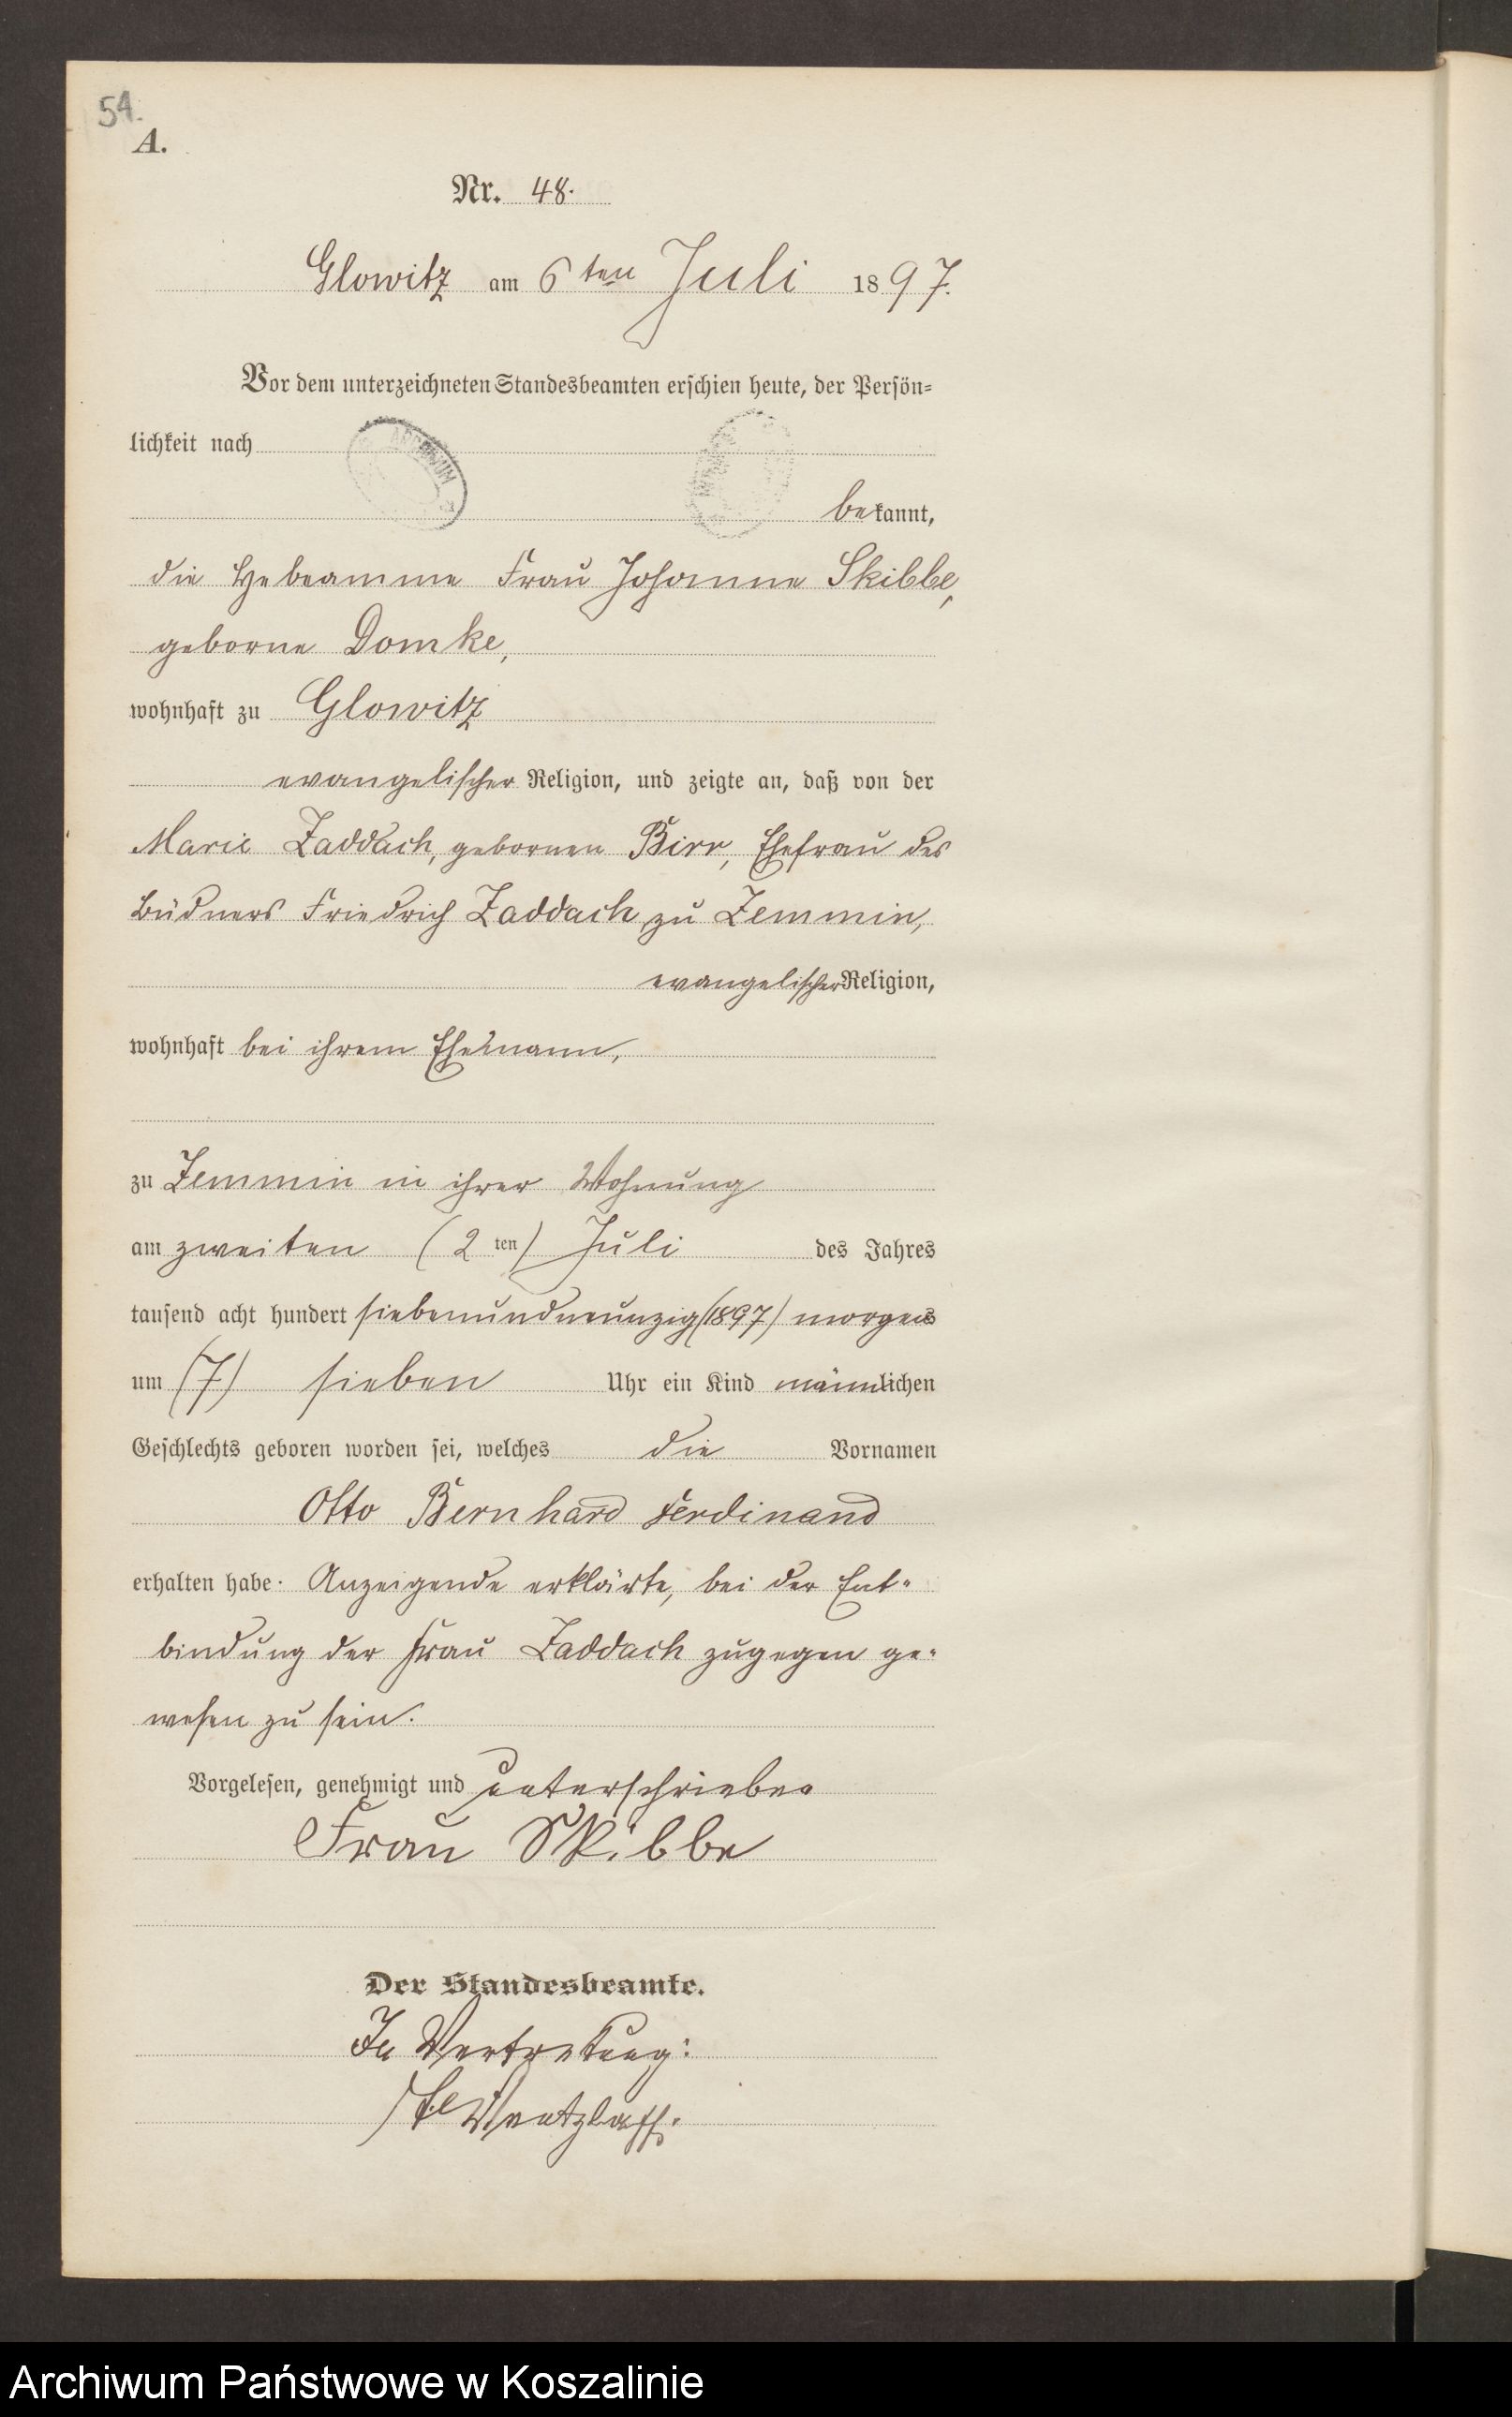 54.
A.
Nr. 48.
Glowitz am 6ten Juli 1897.
Vor dem unterzeichneten Standesbeamten erschien heute, der Persön=
lichkeit nach
ARCHIWUM
bekannt,
die Hebeamme Frau Johanne Skibbe,
geborne Domke,
wohnhaft zu Glowitz
evangelischer Religion, und zeigte an, daß von der
Marie Zaddach, gebornen Birr, Ehefrau des
Büdners Friedrich Zaddach zu Zemmin,
evangelischer Religion,
wohnhaft bei ihrem Ehemann,
zu Zemmin in ihrer Wohnung
am zweiten (2ten) Juli des Jahres
tausend acht hundert siebenundneunzig (1897) morgens
um (7) sieben Uhr ein Kind männlichen
Geschlechts geboren worden sei, welches die Vornamen
Otto Bernhard Ferdinand
erhalten habe. Anzeigende erklärte, bei der Ent-
bindung der Frau Zaddach zugegen ge-
wesen zu sein.
Vorgelesen, genehmigt und unterschrieben
Frau Skibbe
Der Standesbeamte.
In Vertretung:
Wentzlaff.
Archiwum Państwowe w Koszalinie